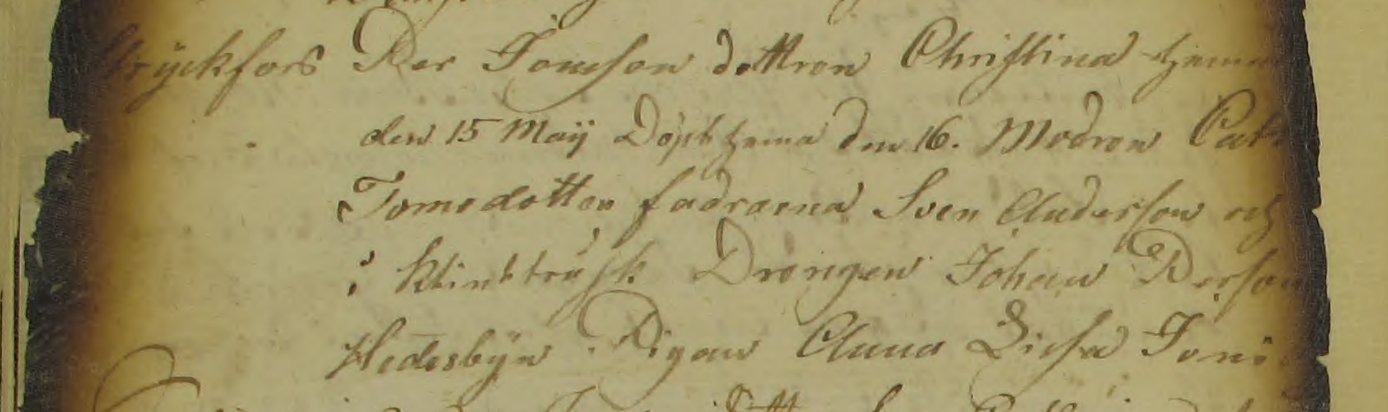 tryckfors Per Jonsson dottron Christina hema
den 15 Maij Döpt hema den 16. Modron Cat
Jonsdotter fadrarna Sven Anderson och
i Klinttrusk Drängen Johan Person
Hedesbyn Pigan Anna Liesa Jons